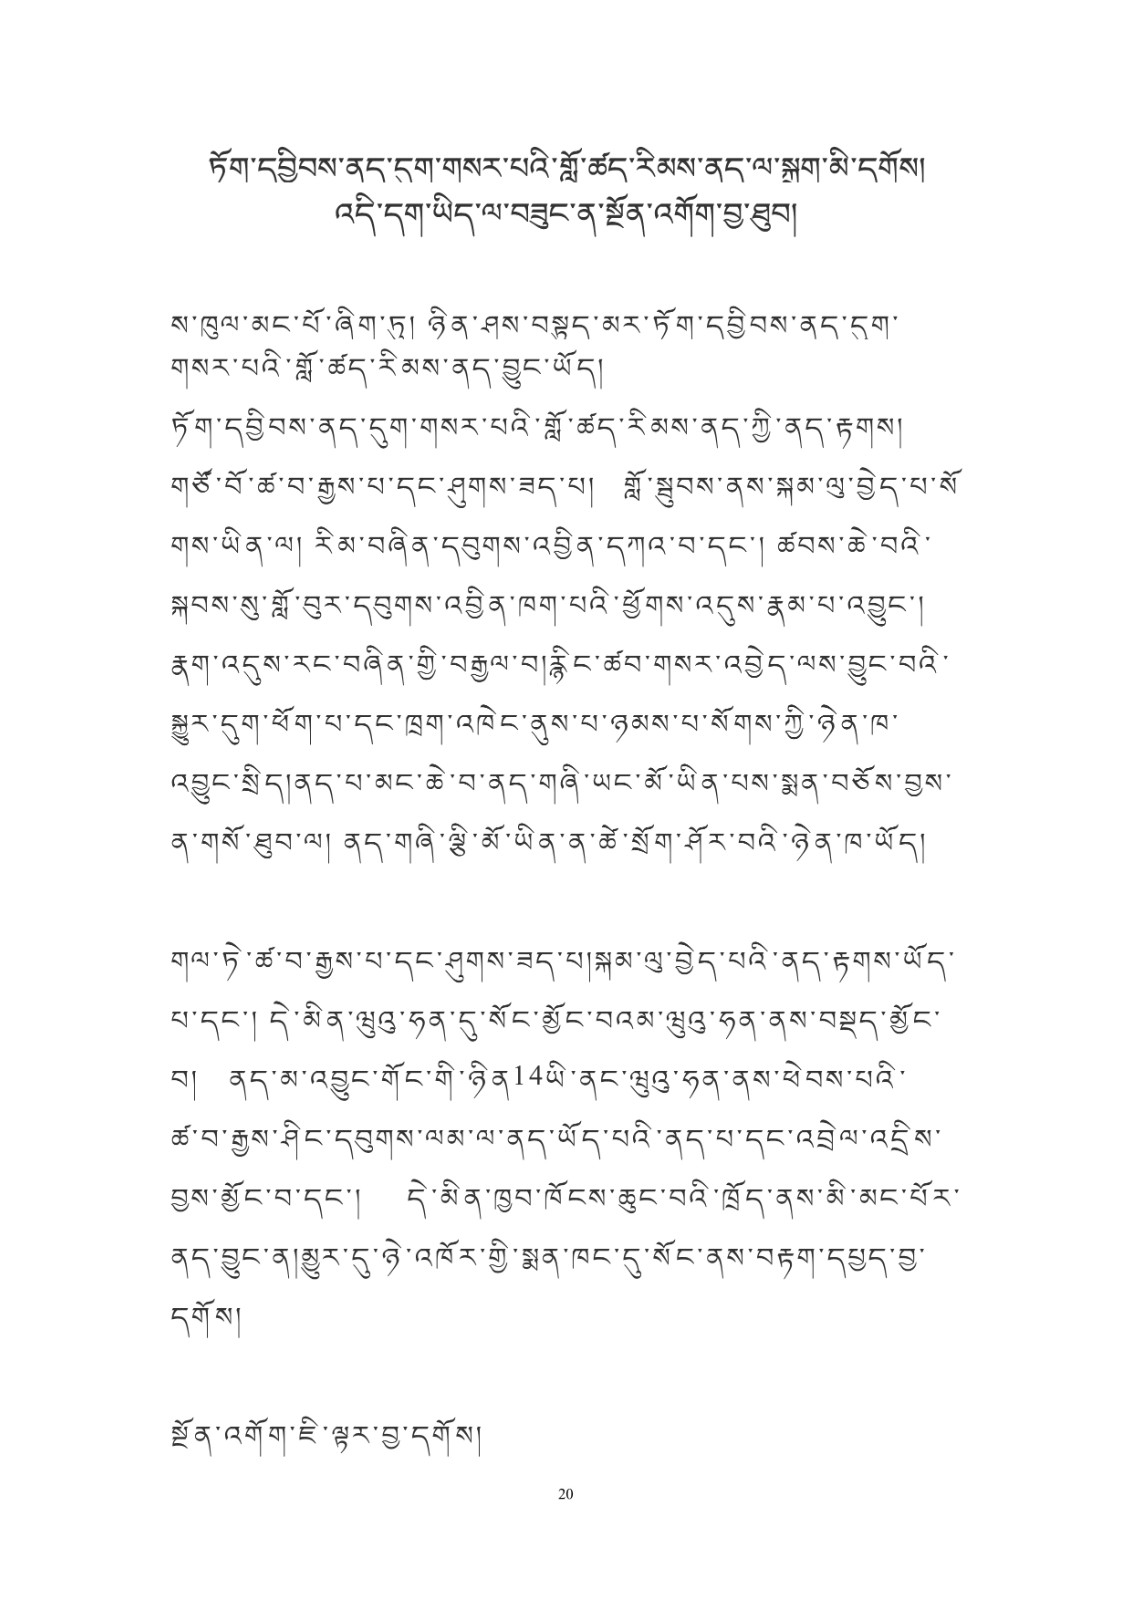 ཏོག་དབྱིབས་ནད་དུག་གསར་པའི་གློ་ཚད་རིམས་ནད་ལ་སྐྲག་མི་དགོས།
འདི་དག་ཡིད་ལ་བཟུང་ན་སྔོན་འགོག་བྱ་ཐུབ།
ས་ཁུལ་མང་པོ་ཞིག་ཏུ། ཉིན་ཤས་བསྟུད་མར་ཏོག་དབྱིབས་ནད་དུག་
གསར་པའི་གློ་ཚད་རིམས་ནད་བྱུང་ཡོད།
ཏོག་དབྱིབས་ནད་དུག་གསར་པའི་གློ་ཚད་རིམས་ནད་ཀྱི་ནད་རྟགས།
གཙོ་བོ་ཚ་བ་རྒྱས་པ་དང་ཤུགས་ཟད་པ། གློ་སྦུབས་ནས་སྐམ་ལུ་བྱེད་པ་སོ
གས་ཡིན་ལ། རིམ་བཞིན་དབུགས་འབྱིན་དཀའ་བ་དང་། ཚབས་ཆེ་བའི་
སྐབས་སུ་གློ་བུར་དབུགས་འབྱིན་ཁག་པའི་ཕྱོགས་འདུས་རྣམ་པ་འབྱུང་།
རྣག་འདུས་རང་བཞིན་གྱི་བརྒྱལ་བ།རྙིང་ཚབ་གསར་འབྱེད་ལས་བྱུང་བའི་
སྐྱུར་དུག་ཕོག་པ་དང་ཁྲག་འཁེང་ནུས་པ་ཉམས་པ་སོགས་ཀྱི་ཉེན་ཁ་
འབྱུང་སྲིད།ནད་པ་མང་ཆེ་བ་ནད་གཞི་ཡང་མོ་ཡིན་པས་སྨན་བཅོས་བྱས་
ན་གསོ་ཐུབ་ལ། ནད་གཞི་ལྕི་མོ་ཡིན་ན་ཚེ་སྲོག་ཤོར་བའི་ཉེན་ཁ་ཡོད།
གལ་ཏེ་ཚ་བ་རྒྱས་པ་དང་ཤུགས་ཟད་པ།སྐམ་ལུ་བྱེད་པའི་ནད་རྟགས་ཡོད་
པ་དང་། དེ་མིན་ཝུའུ་ཧན་དུ་སོང་མྱོང་བའམ་ཝུའུ་ཧན་ནས་བསྡད་མྱོང་
བ། ནད་མ་འབྱུང་གོང་གི་ཉིན14ཡི་ནང་ཝུའུ་ཧན་ནས་ཕེབས་པའི་
ཚ་བ་རྒྱས་ཤིང་དབུགས་ལམ་ལ་ནད་ཡོད་པའི་ནད་པ་དང་འབྲེལ་འདྲིས་
བྱས་མྱོང་བ་དང་། དེ་མིན་ཁྱབ་ཁོངས་ཆུང་བའི་ཁྲོད་ནས་མི་མང་པོར་
ནད་བྱུང་ན།མྱུར་དུ་ཉེ་འཁོར་གྱི་སྨན་ཁང་དུ་སོང་ནས་བརྟག་དཔྱད་བྱ་
དགོས།
སྔོན་འགོག་ཇི་ལྟར་བྱ་དགོས།
20